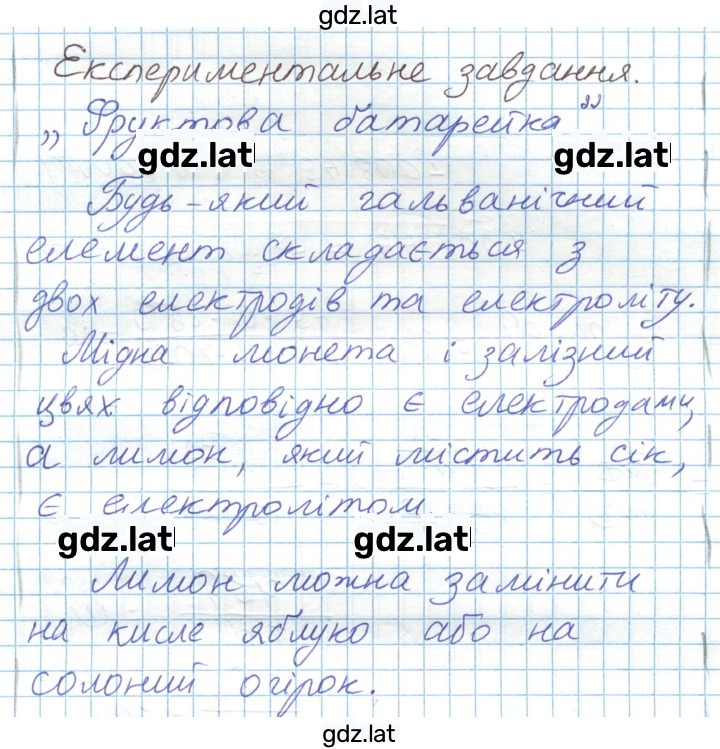 gdz.lat
Експериментальне завдання.
„Фруктова батарейка“
gdz.lat gdz.lat
Будь-який гальванічний
елемент складається з
двох електродів та електроліту.
Мідна монета і залізний
цвях відповідно є електродами,
а лимон, який містить сік,
є електролітом.
gdz.lat gdz.lat
Лимон можна замінити
на кисле яблуко або на
солоний огірок.
gdz.lat